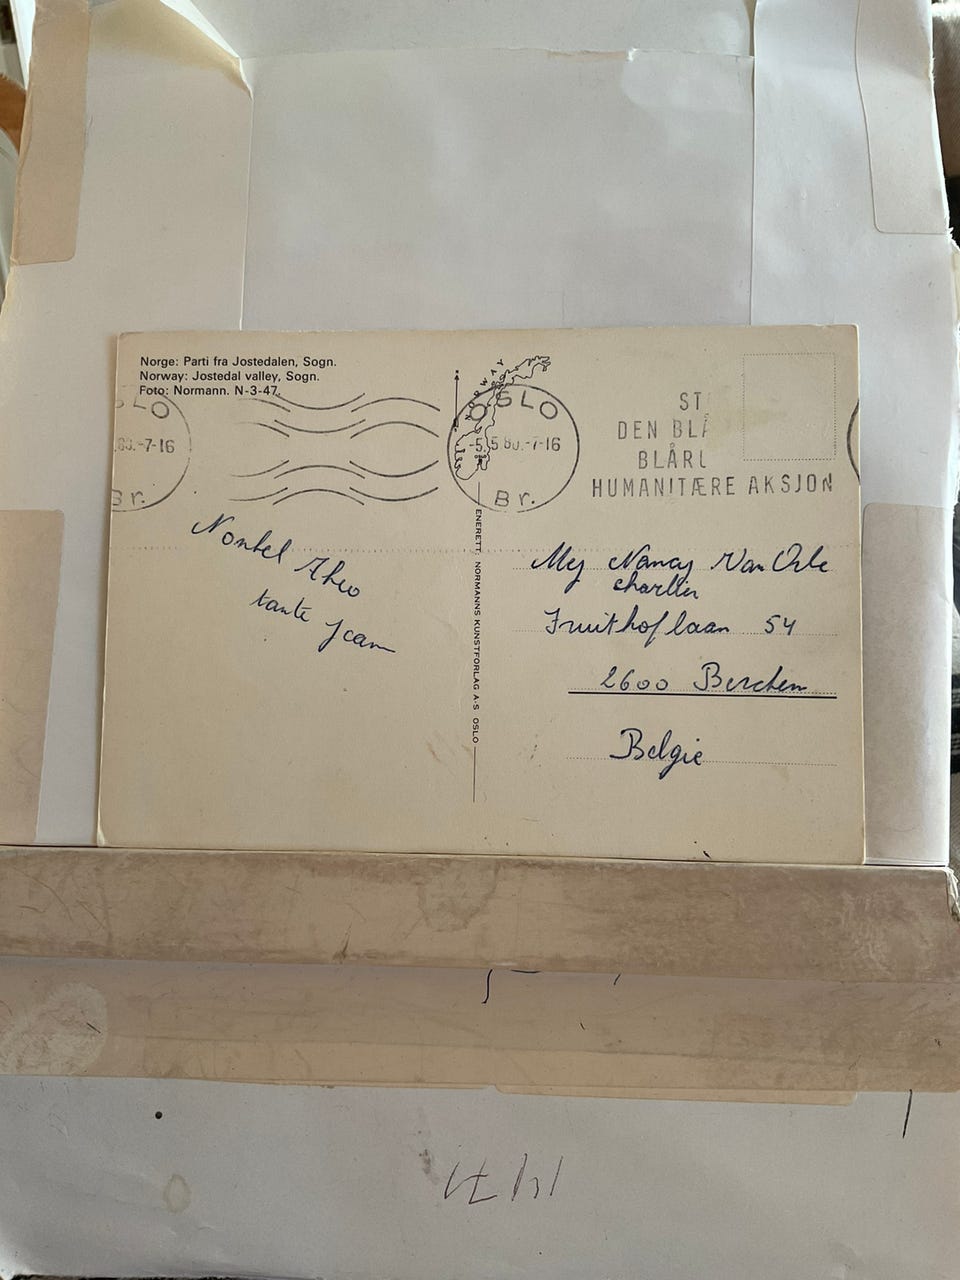 Norge: Parti fra Jostedalen, Sogn.
Norway: Jostedal valley, Sogn.
Foto: Normann. N-3-47.
NORWAY
SLO
-7-16
Br.
OSLO
-5.5 80.-7-16
Br.
ST
DEN BLÅ
BLÅRU
HUMANITÆRE AKSJON
Nonkel Theo
tante Jean
ENERETT: NORMANNS KUNSTFORLAG A-S OSLO
Mej Nancy Van
charlier
Fruithoflaan 54
2600 Berchem
Belgie